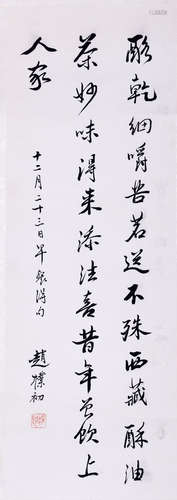 酪乾細嚼苦茗送不殊西藏酥油
茶妙味得来添法喜昔年曾飲上
人家
十二月二十三日早得句
趙樸初